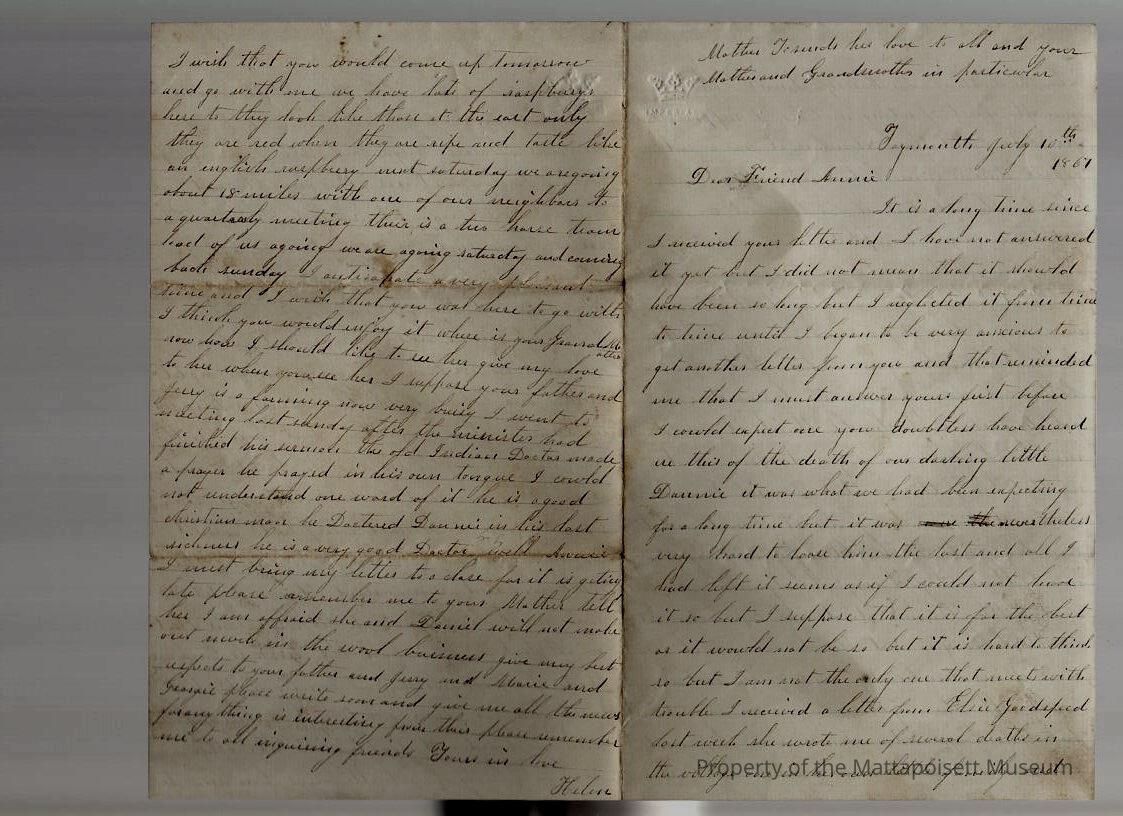 Mother T sends her love to all and your
Mother and Grandmother in particular
Tymouth July 10th
1861
Dear Friend Annie
It is a long time since
I received your letter and I have not answered
it yet but I did not mean that it should
have been so long but I neglected it from time
to time until I began to be very anxious to
get another letter from you and that reminded
me that I must answer yours first before
I could expect one you doubtless have heard
ere this of the death of our darling little
Dannie it was what we had been expecting
for a long time but it was nevertheless
very hard to loose him the last and all I
had left it seems as if I could not have
it so but I suppose that it is for the best
or it would not be so but it is hard to think
so but I am not the only one that meets with
trouble I received a letter from Elsie Goodspeed
last week she wrote me of several deaths in
the village
I wish that you would come up tomorrow
and go with me we have lots of raspburys
here to they look like those at the east only
they are red when they are ripe and taste like
an english raspbury next saturday we are going
about 18 miles with one of our neighbors to
a quarterly meeting their is a two horse team
load of us agoing we are agoing saturday and coming
back sunday I anticapate a very pleasant
time and I wish that you was here to go with
I think you would enjoy it where is your Grand Mother
now how I should like to see her give my love
to her when you see her I suppose your father and
Jerry is a farming now very buisy I went to
meeting last sunday after the minister had
finished his sermon the old Indian Doctor made
a prayer he prayed in his own tongue I could
not understand one word of it he is a good
christian man he Doctered Dannie in his last
sickness he is a very good Doctor well Annie
I must bring my letter to a close for it is geting
late please remember me to your Mother tell
her I am affraid she and Daniel will not make
out much in the wool buisness give my best
respects to your father and Jerry and Marie and
Georgie please write soon and give me all the news
for any thing is interesting from their please remember
me to all inquiring friends Yours in love
Helen
Property of the Mattapoisett Museum